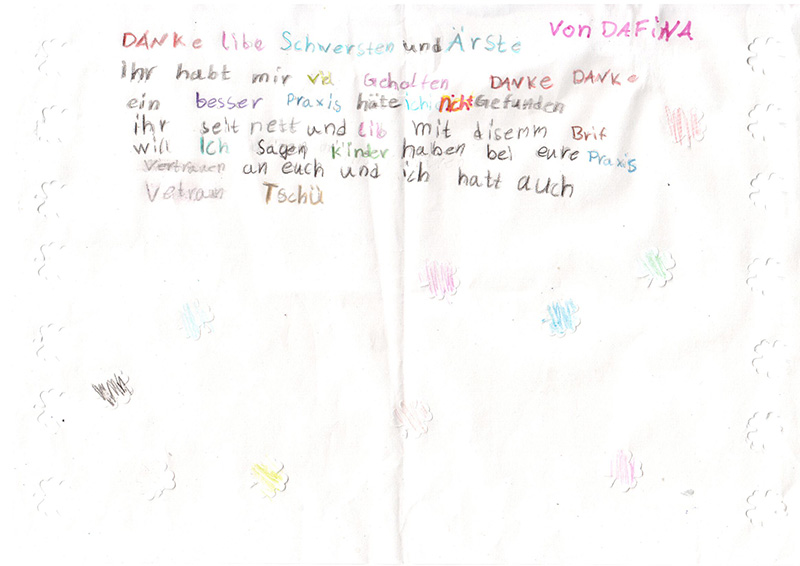 DANKE libe Schwersten und Ärste
von DAFiNA
Ihr habt mir viel Geholfen DANKE DANKE
ein besser Praxis häte ich nicht Gefunden
ihr seit nett und lib mit disemm Brif
will Ich sagen kinder haben bei eure Praxis
Vertrauen an euch und ich hatt auch
Vetraun Tschü